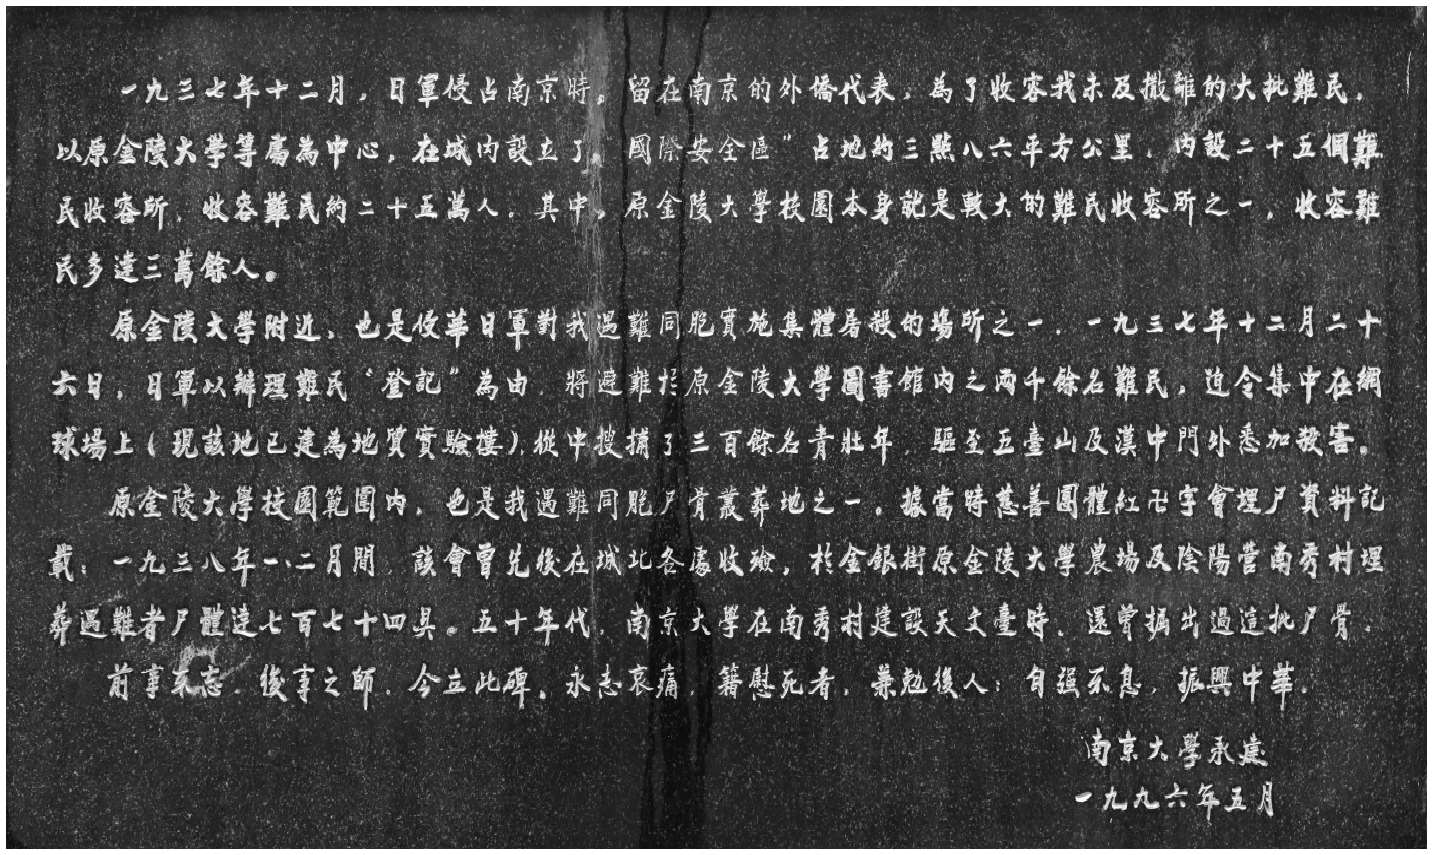 一九三七年十二月，日軍侵占南京時，留在南京的外僑代表，為了收容我未及撤離的大批難民，
以原金陵大學等處為中心，在城內設立了，國際安全區”占地約三點八六平方公里，內設二十五個難
民收容所，收容難民約二十五萬人。其中，原金陵大學校園本身就是較大的難民收容所之一，收容難
民多達三萬餘人。
原金陵大學附近，也是侵華日軍對我遇難同胞實施集體屠殺的場所之一，一九三七年十二月二十
六日，日軍以辦理難民“登記”為由，將避難於原金陵大學圖書館內之兩千餘名難民，迫令集中在網
球場上(現該地已建為地質實驗樓)，從中搜捕了三百餘名青壯年，驅至五臺山及漢中門外悉加殺害。
原金陵大學校園範圍內，也是我遇難同胞尸骨叢葬地之一。據當時慈善團體紅卍字會埋尸資料記
載：一九三八年一、二月間，該會曾先後在城北各處收殮，於金銀街原金陵大學農場及陰陽營南秀村埋
葬遇難者尸體達七百七十四具。五十年代，南京大學在南秀村建設天文臺時，還曾掘出過這批尸骨，
前事不忘，後事之師，今立此碑，永志哀痛，籍慰死者，兼勉後人：自强不息，振興中華。
南京大學承建
一九九六年五月